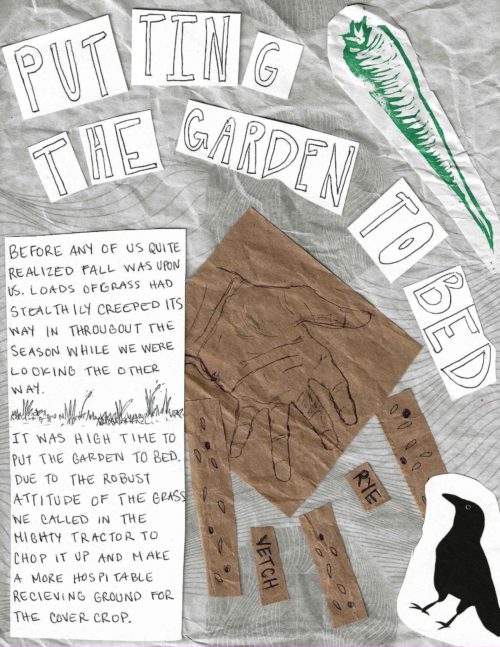 PUTTING
THE GARDEN TO BED
BEFORE ANY OF US QUITE
REALIZED FALL WAS UPON
US. LOADS OF GRASS HAD
STEALTHILY CREEPED ITS
WAY IN THROUGOUT THE
SEASON WHILE WE WERE
LOOKING THE OTHER
WAY.
IT WAS HIGH TIME TO
PUT THE GARDEN TO BED.
DUE TO THE ROBUST
ATTITUDE OF THE GRASS
WE CALLED IN THE
MIGHTY TRACTOR TO
CHOP IT UP AND MAKE
A MORE HOSPITABLE
RECIEVING GROUND FOR
THE COVER CROP.
RYE
VETCH